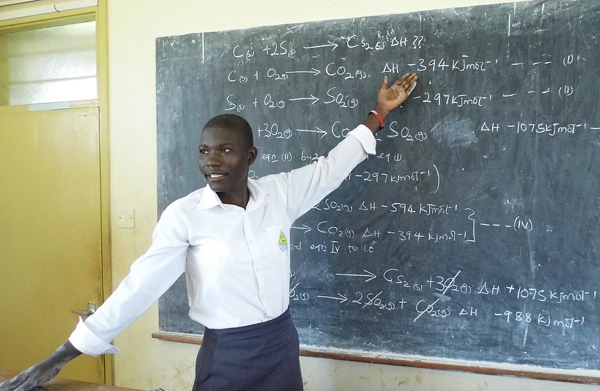 C(s) + 2S(s) → CS2(s) ΔH ??
C(s) + O2(g) → CO2(g), ΔH -394 KJmol-1 --- (i)
S(s) + O2(g) → SO2(g) -297 KJmol-1 --- (ii)
+ 3O2(g) → SO2(g) ΔH -1075 KJmol-1 --
eq (ii) by eq (i)
-297 KJmol-1 )
2SO2(g) ΔH -594 KJmol-1
→ CO2(g) ΔH -394 KJmol-1 ] --- (iv)
eqn iv to
→ CS2(s) + 3O2(g) ΔH +1075 KJmol-1
O2(g) → 2SO2(g) + CO2(g) ΔH -988 KJmol-1